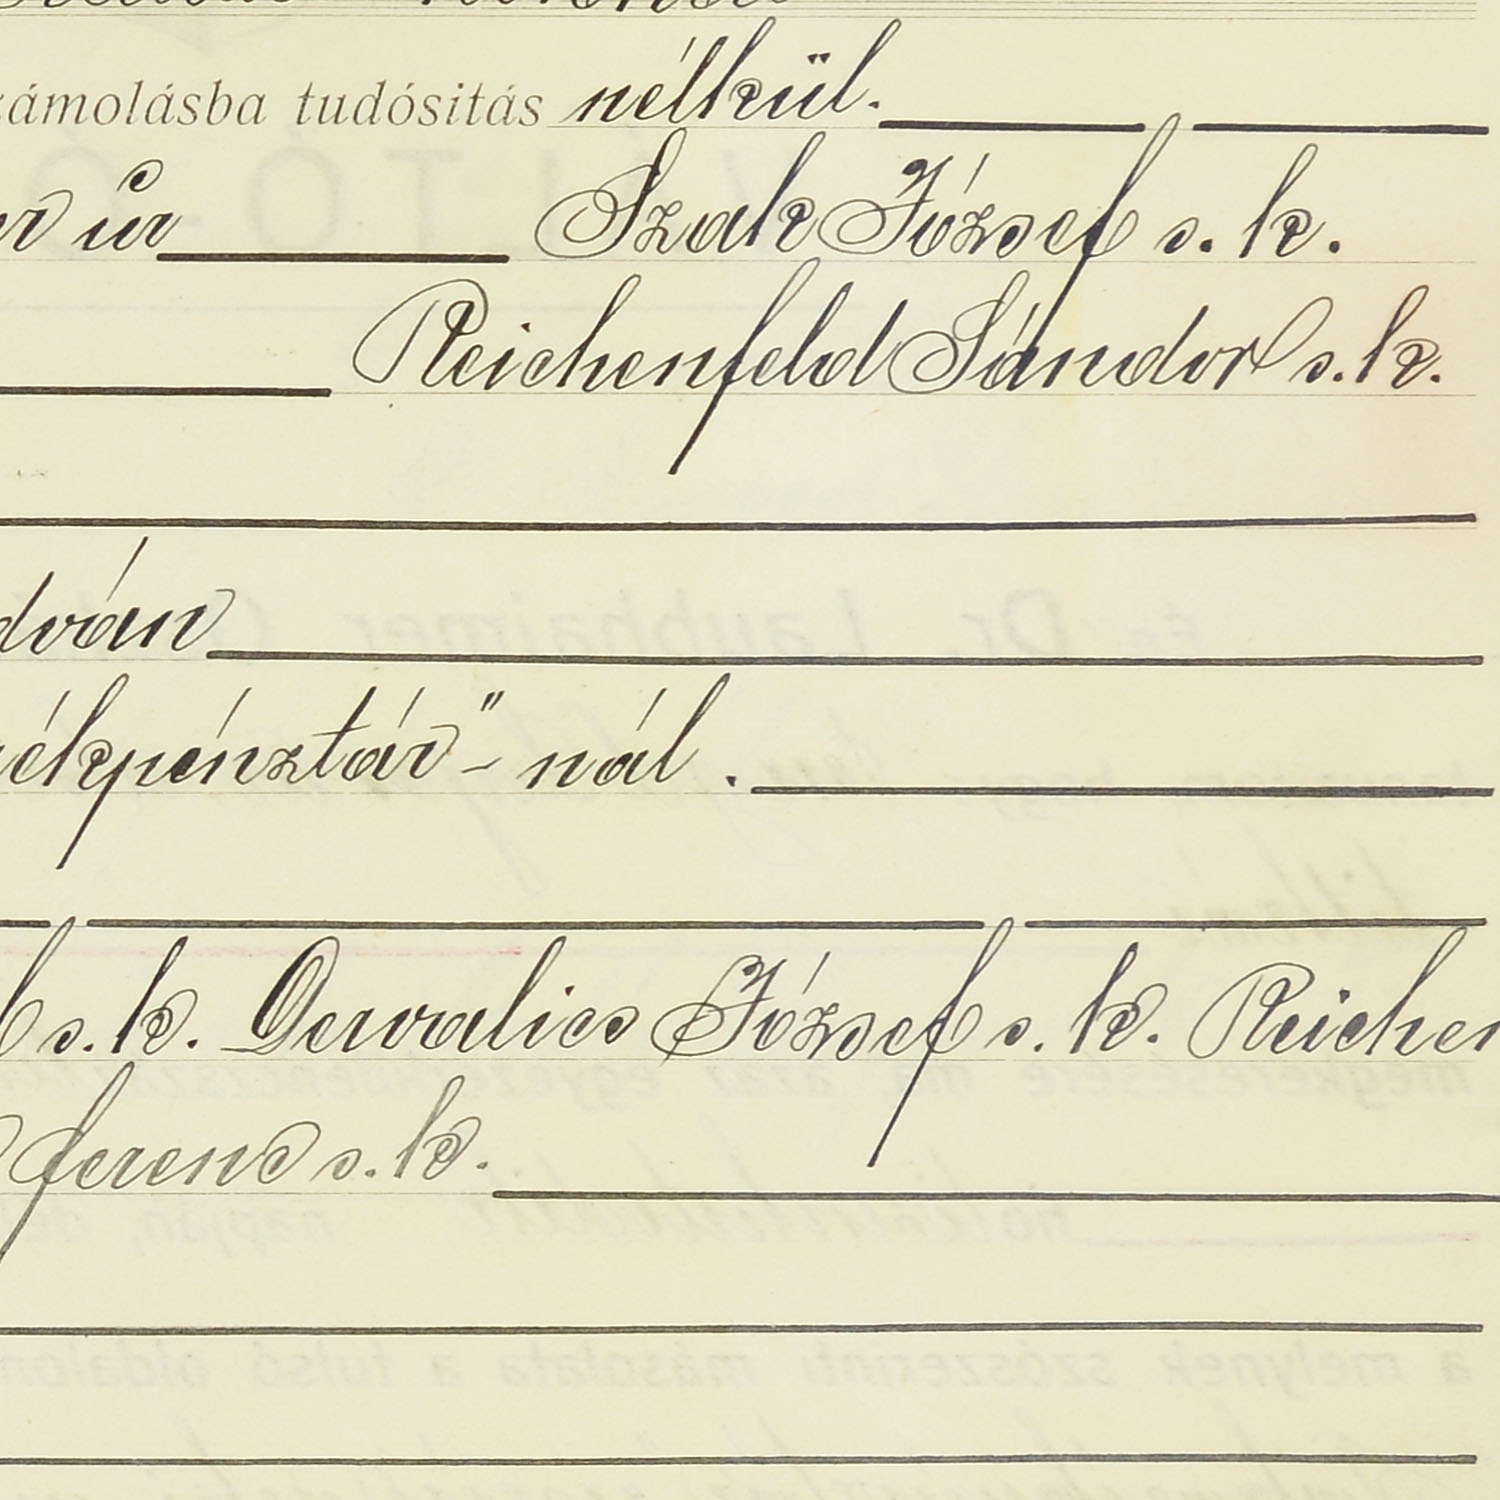 számolásba tudósitás nélkül.
úr Szak József s. k.
Reichenfeld Sándor s. k.
ékpénztár" - nál.
s. k. Dervalics József s. k. Reichen
Ferenc s. k.